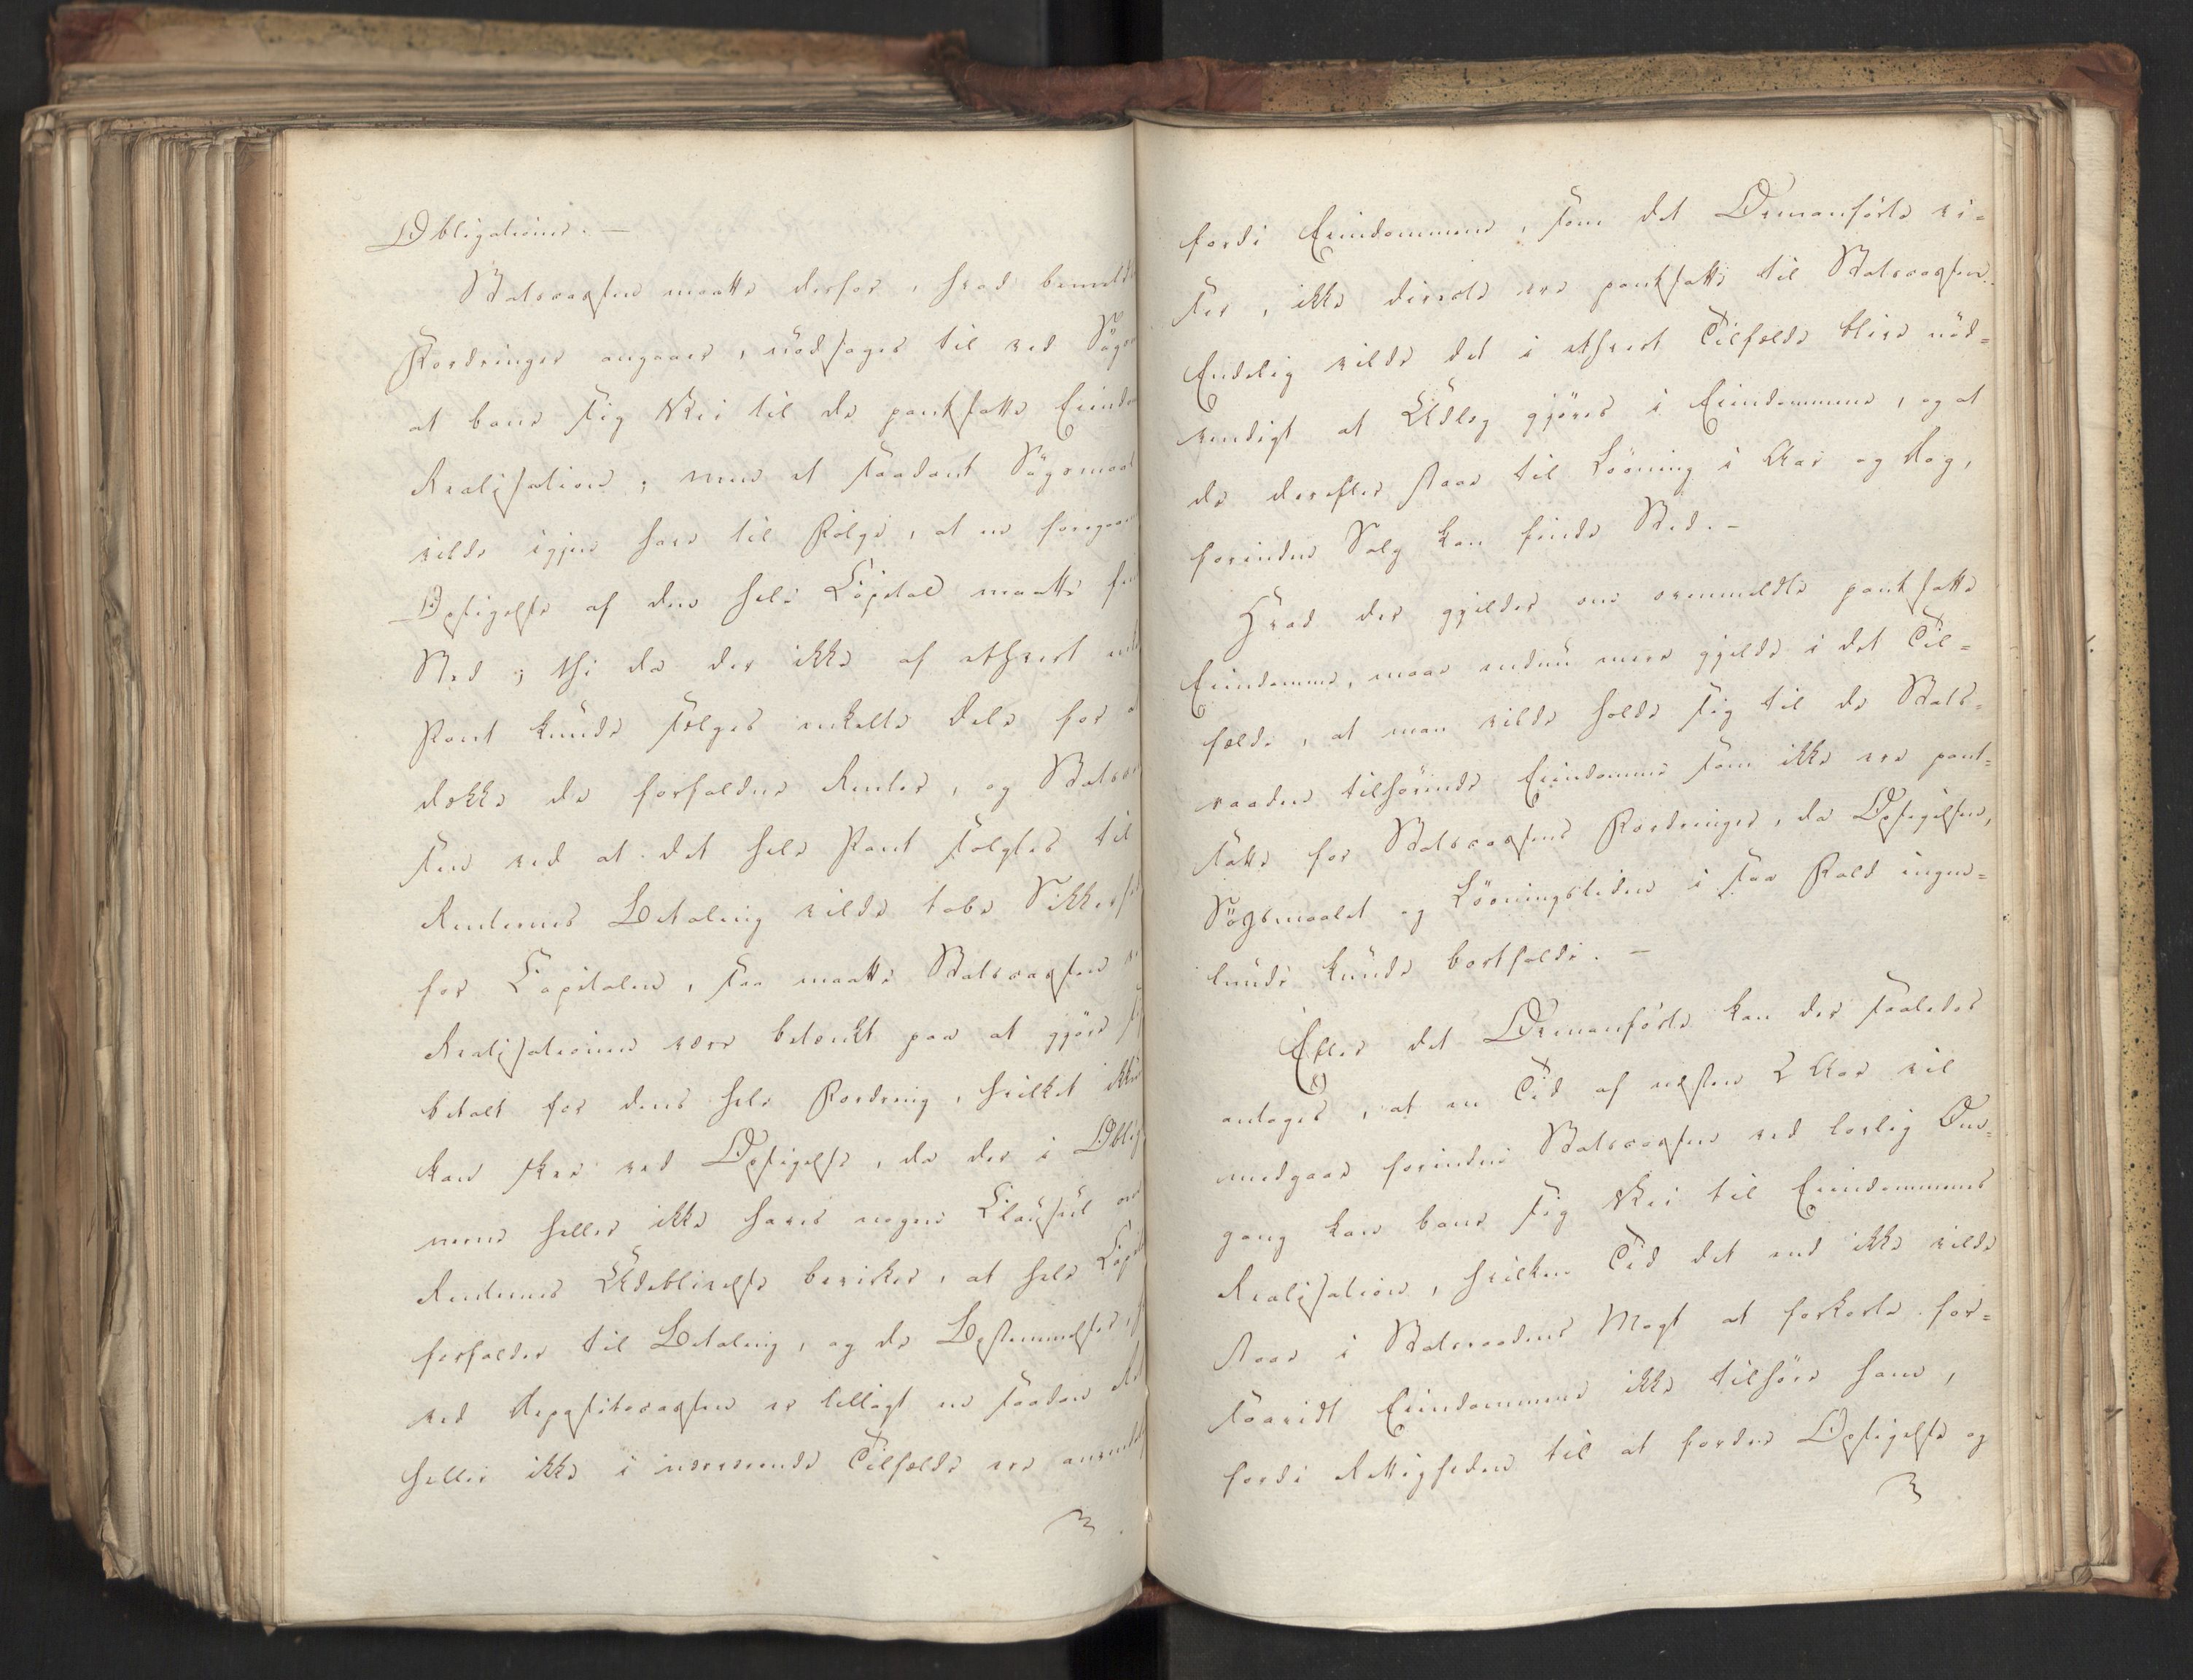 Obligationer. —
Statscassen maatte derfor, hvad bemeldte
Fordringer angaaer, nödsages til ved Sögs
at bane sig Vei til de pantsatte Eiendom
Realisation; men et saadant Sögsmaal
vilde igjen have til Fölge, at en foregaaen
Opsigelse af den hele Capital maatte fin
Sted; thi da der ikke af ethvert
Pant kunde sælges enkelte Dele for a
dække de forfaldne Renter, og Statscas
sen ved at det hele Pant solgtes til
Renternes Betaling vilde tabe Sikkerhed
for Capitalen, saa maatte Statscassen v
Realisationen være betænkt paa at gjöre sig
betalt for dens hele Fordring, hvilket ikke
kan skee ved Opsigelse, da der i Oblig
nerne heller ikke haves nogen Clausul om
Renternes Udeblivelse bevirker, at hele Capit
forfalder til Betaling, og de Bestemmelser, h
ved Depositocassen er tillagt en saadan Ret
heller ikke i nærværende Tilfælde ere anvendel
fordi Eiendommene, som det Ovenanförte vi-
ser, ikke directe ere pantsatte til Statscassen.
Endelig vilde det i ethvert Tilfælde blive nöd-
vendigt at Udlæg gjöres i Eiendommene, og at
de derefter staae til Lösning i Aar og Dag,
forinden Salg kan finde Sted. –
Hvad der gjelder om ovenmeldte pantsatte
Eiendomme, maae endnu mere gjelde i det Til-
fælde, at man vilde holde sig til de Stats-
raaden tilhörende Eiendomme som ikke ere pant-
satte for Statscassens Fordringer, da Opsigelsen,
Sögsmaalet og Lösningstiden i saa Fald ingen-
lunde kunde bortfalde. —
Efter det Ovenanförte kan der saaledes
antages, at en Tid af næsten 2 Aar vil
medgaae forinden Statscassen ved lovlig Om-
gang kan bane sig Vei til Eiendommenes
Realisation, hvilken Tid det end ikke vilde
staae i Statsraadens Magt at forkorte for-
saavidt Eiendommene ikke tilhöre ham,
fordi Rettigheden til at fordre Opsigelse og